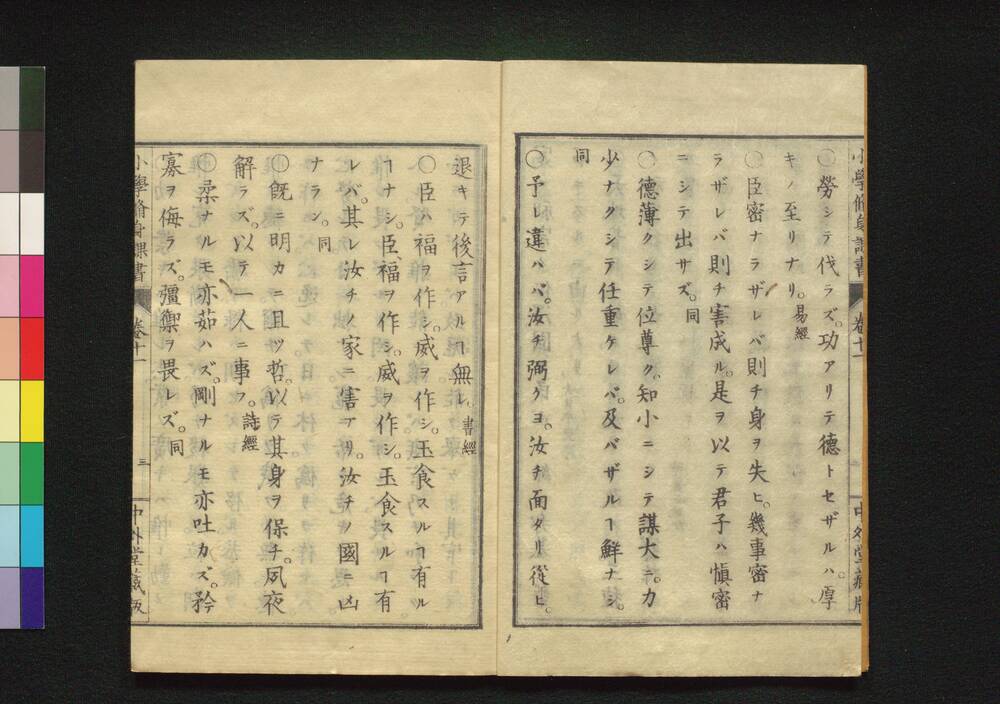 小學脩身課書 卷十一 中外堂藏版
〇勞シテ伐ラズ。功アリテ德トセザルハ。厚
キノ至リナリ。易經
〇臣密ナラザレバ則チ身ヲ失ヒ。幾事密ナ
ラザレバ則チ害成ル。是ヲ以テ君子ハ愼密
ニシテ出サズ。同
〇德薄クシテ位尊ク。知小ニシテ謀大ニ。力
少ナクシテ任重ケレバ。及バザルヿ鮮ナシ。
同
〇予レ違ハバ。汝ヂ弼クヨ。汝ヂ面タリ從ヒ。
退キテ後言アルヿ無レ。書經
〇臣ハ福ヲ作シ。威ヲ作シ。玉食スルヿ有ル
ヿナシ。臣、福ヲ作シ。威ヲ作シ。玉食スルヿ有
レバ。其レ汝チノ家ニ害アリ。汝チノ國ニ凶
ナラン。同
〇旣ニ明カニ且ツ哲。以テ其身ヲ保チ。夙夜
解ラズ。以テ一人ニ事フ。詩經
〇柔ナルモ亦茹ハズ。剛ナルモ亦吐カズ。矜
寡ヲ侮ラズ。彊禦ヲ畏レズ。同
小學脩身課書 卷十一 三 中外堂藏版